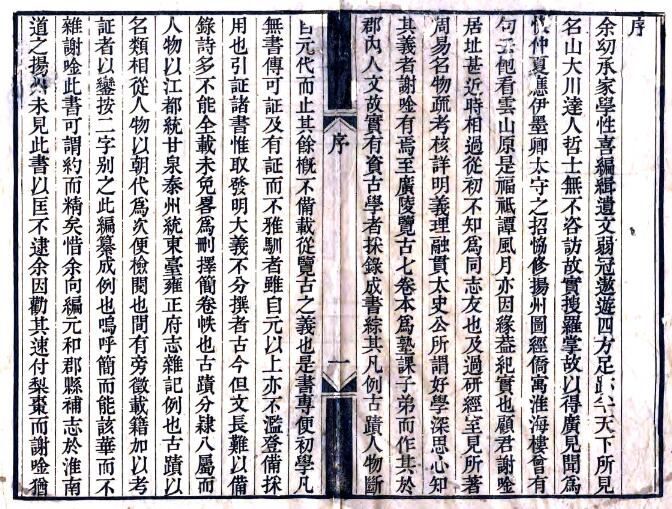 序
余幼承家學性喜編緝遺文弱冠遨遊四方足跡半天下所見
名山大川達人哲士無不咨訪故實搜羅掌故以得廣見聞爲
仲夏應伊墨卿太守之招恊修揚州圖經僑寓淮海樓曾有
句云飽看雲山原是福祗譚風月亦因緣葢紀實也顧君謝唫
居址甚近時相過從初不知爲同志友也及過研經室見所著
周易名物疏考核詳明義理融貫太史公所謂好學深思心知
其義者謝唫有焉至廣陵覽古七卷本爲塾課子弟而作其於
郡內人文故實有資古學者採錄成書綜其凡例古蹟人物斷
序
一
自元代而止其餘槪不備載從覽古之義也是書專便初學凡
無書傳可証及有証而不雅馴者雖自元以上亦不濫登備採
用也引証諸書惟取發明大義不分撰者古今但文長難以備
錄詩多不能全載未免畧爲刪擇簡卷帙也古蹟分隸八屬而
人物以江都統甘泉泰州統東臺雍正府志雜記例也古蹟以
名類相從人物以朝代爲次便檢閱也間有旁徵載籍加以考
証者以鑾按二字別之此編纂成例也嗚呼簡而能該華而不
雜謝唫此書可謂約而精矣惜余向編元和郡縣補志於淮南
道之揚州未見此書以匡不逮余因勸其速付棃棗而謝唫猶